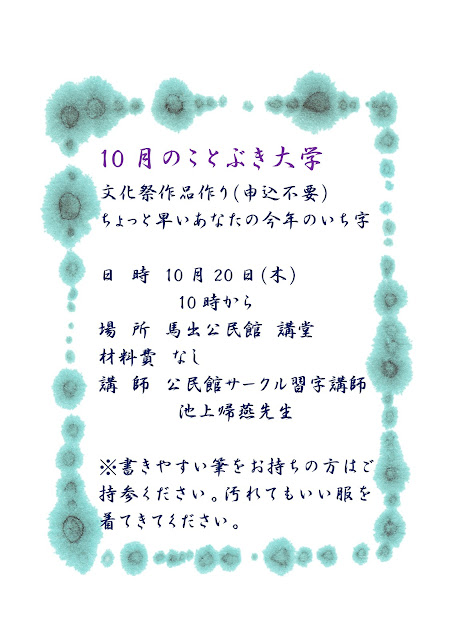 10月のことぶき大学
文化祭作品作り(申込不要)
ちょっと早いあなたの今年のいち字
日　時　10月20日(木)
10時から
場　所　馬出公民館　講堂
材料費　なし
講　師　公民館サークル習字講師
池上帰燕先生
※書きやすい筆をお持ちの方はご
持参ください。汚れてもいい服を
着てきてください。